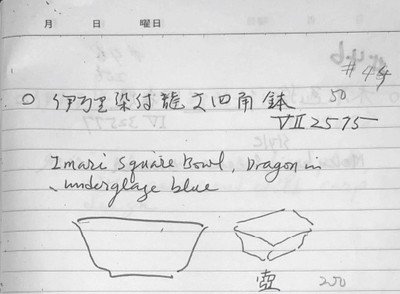 月 日 曜日
#44
○ 伊万里染付龍文四角鉢 50
VII 2575
Imari Square Bowl, Dragon in
underglaze blue
250